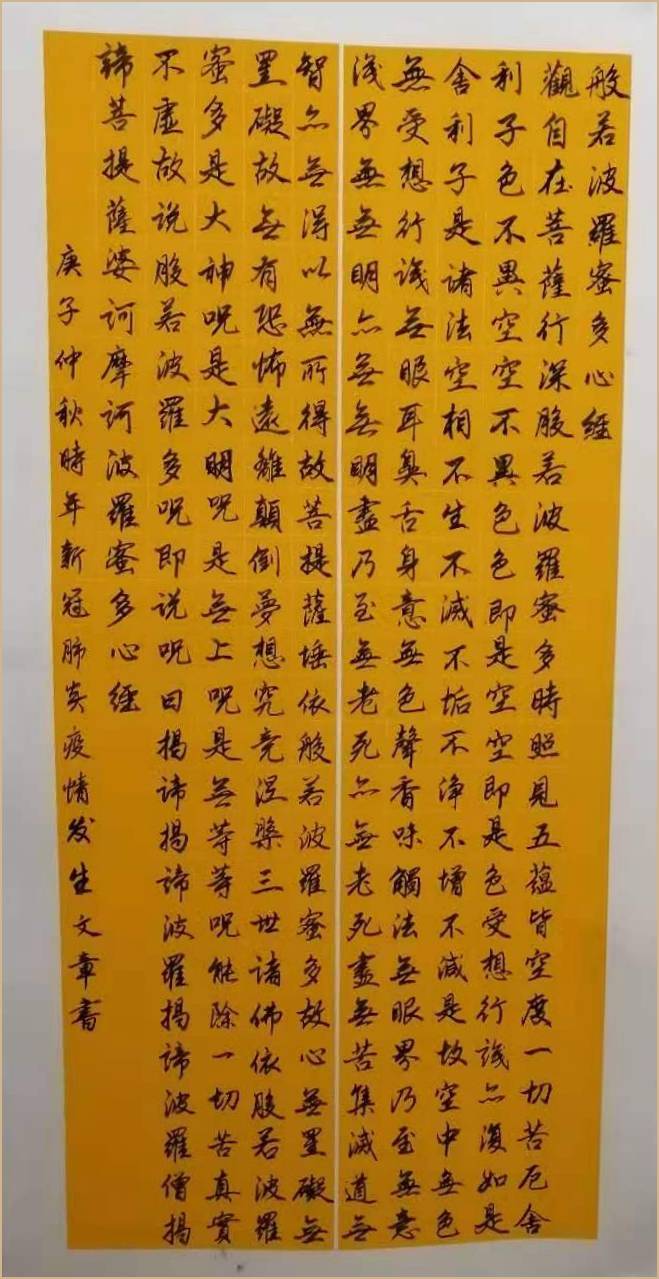 般若波羅蜜多心經
觀自在菩薩行深般若波羅蜜多時照見五蘊皆空度一切苦厄舍
利子色不異空空不異色色即是空空即是色受想行識亦復如是
舍利子是諸法空相不生不滅不垢不淨不增不減是故空中無色
無受想行識無眼耳鼻舌身意無色聲香味觸法無眼界乃至無意
識界無無明亦無無明盡乃至無老死亦無老死盡無苦集滅道無
智亦無得以無所得故菩提薩埵依般若波羅蜜多故心無罣礙無
罣礙故無有恐怖遠離顛倒夢想究竟涅槃三世諸佛依般若波羅
蜜多是大神呪是大明呪是無上呪是無等等呪能除一切苦真實
不虛故說般若波羅多呪即說呪曰揭諦揭諦波羅揭諦波羅僧揭
諦菩提薩婆訶摩訶波羅蜜多心經
庚子仲秋時年新冠肺炎疫情发生文章書